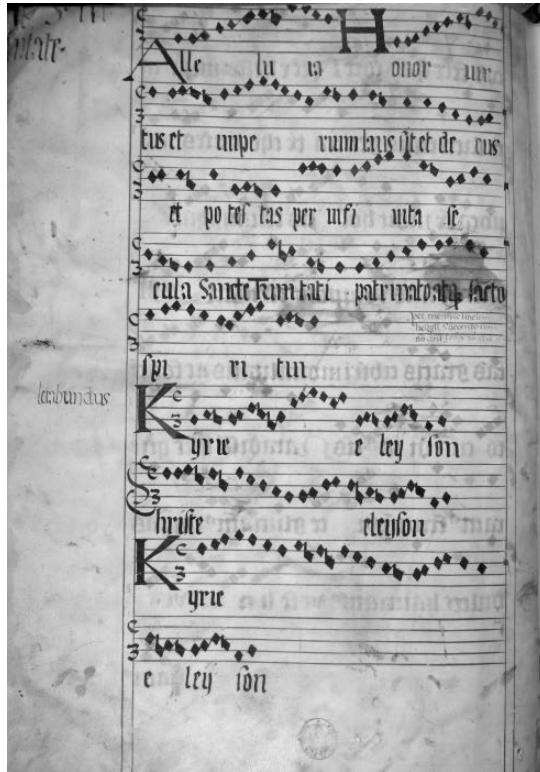 Alle lu ia Honor uir
tus et impe rium laus sit et de cus
et po tes tas per infi nita se
cula Sancte Trini tati patri nato atq sacto
spi ri tui
Kyrie e ley son
Christe eleyson
Kyrie
e ley son